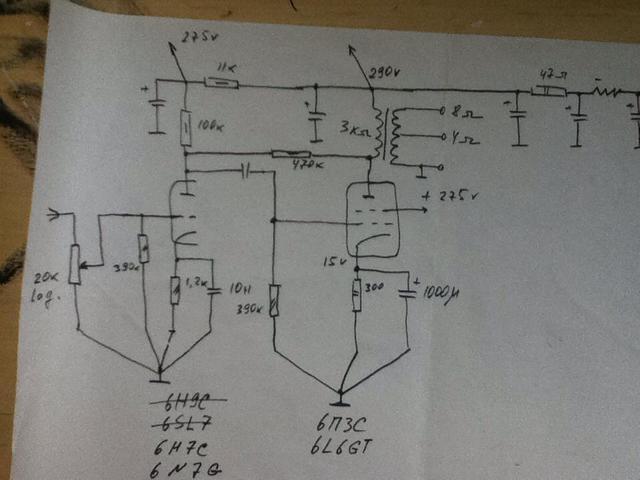 275v
11k
290v
47Ω
100k
3kΩ
8Ω
4Ω
470k
+ 275v
15v
20k
log.
390k
1,2k
10н
390k
300
1000μ
6Н9С
6SL7
6Н7С
6N7G
6П3С
6L6GT